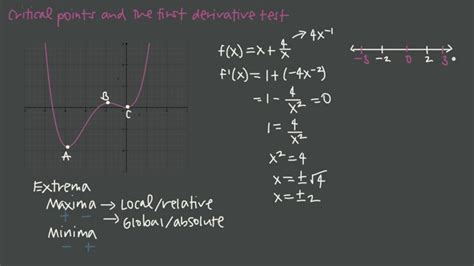 Critical points and the first derivative test
f(x) = x + 4/x → 4x⁻¹
f'(x) = 1 + (-4x⁻²)
= 1 - 4/x² = 0
1 = 4/x²
x² = 4
x = ±√4
x = ±2
-3 -2 0 2 3
A
B
C
Extrema
Maxima → Local/relative
+ - → Global/absolute
Minima
- +